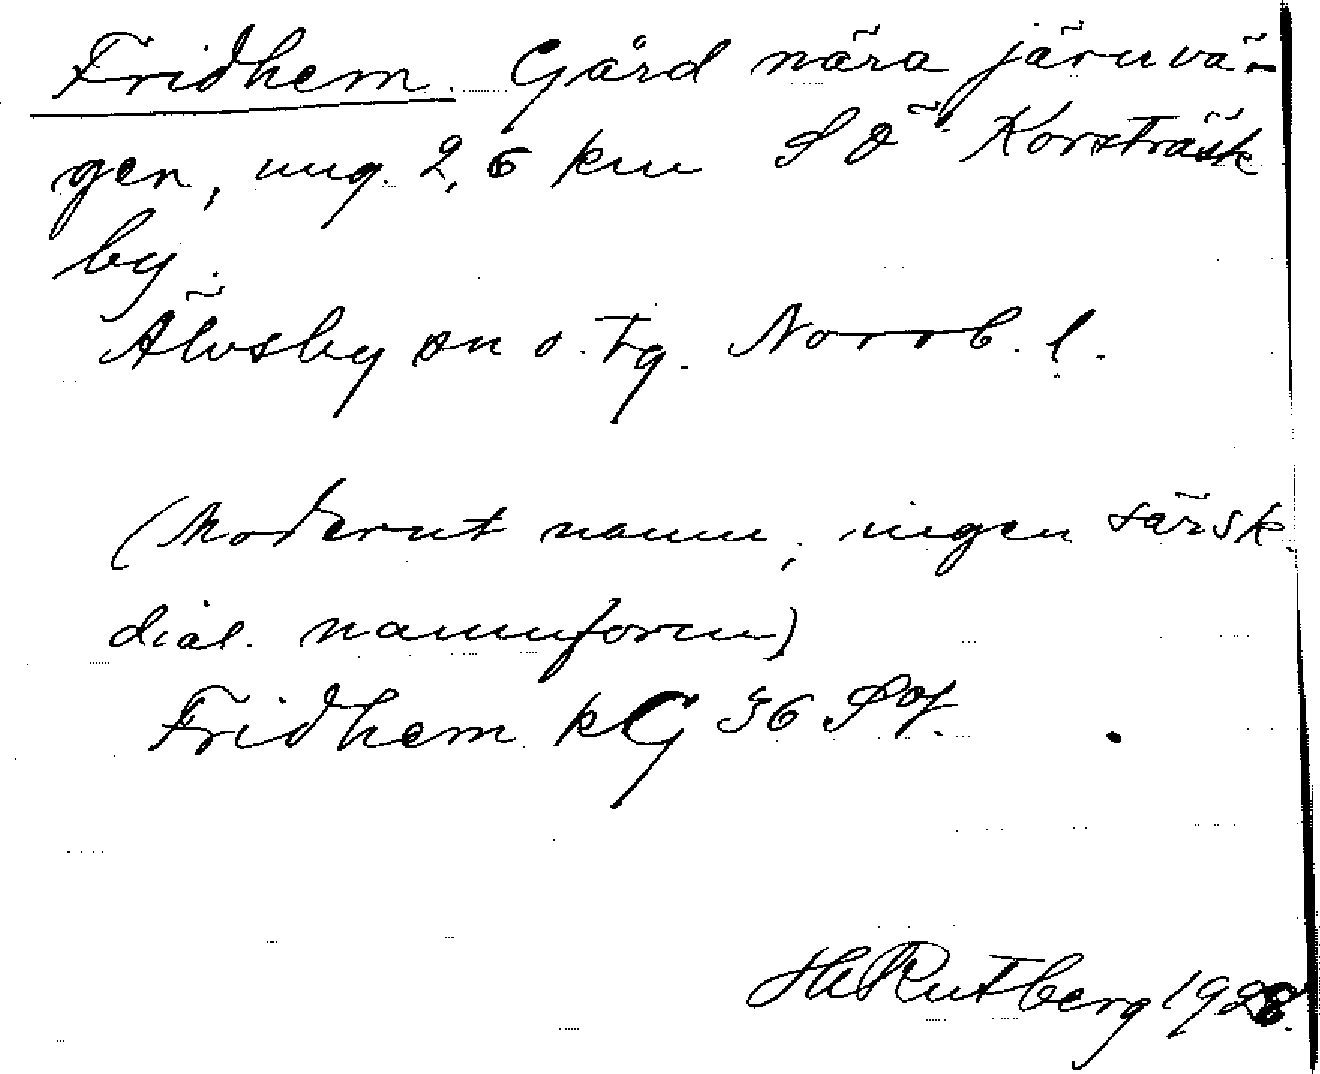 Fridhem. Gård nära järnvä-
gen, ung. 2,5 km SÖ Korsträsk
by.
Älvsby sn o. tg. Norrb. l.
(Modernt namn, ingen särsk.
dial. namnform)
Fridhem kG 36
HRutberg 1928.